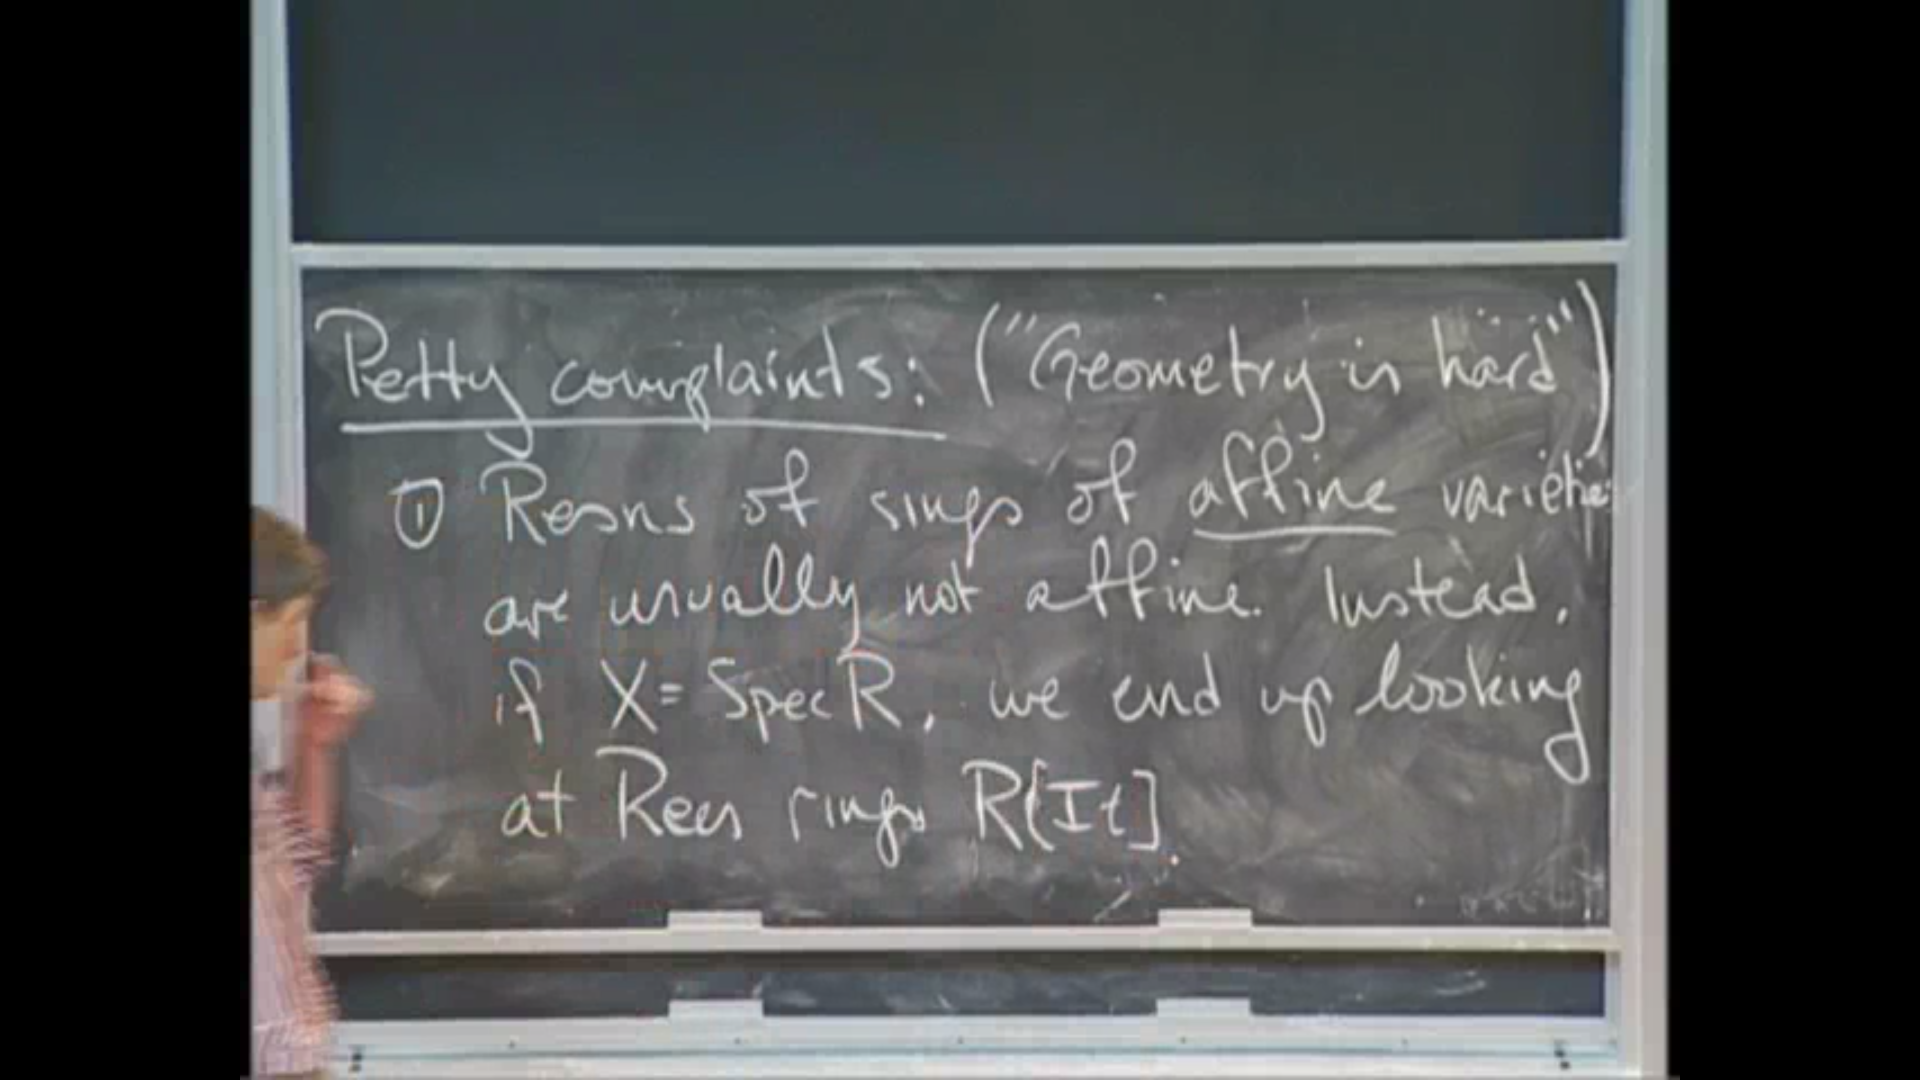 Petty complaints: ("Geometry is hard")
① Resns of sings of affine varieties
are usually not affine. Instead,
if X = Spec R, we end up looking
at Rees rings R[It].